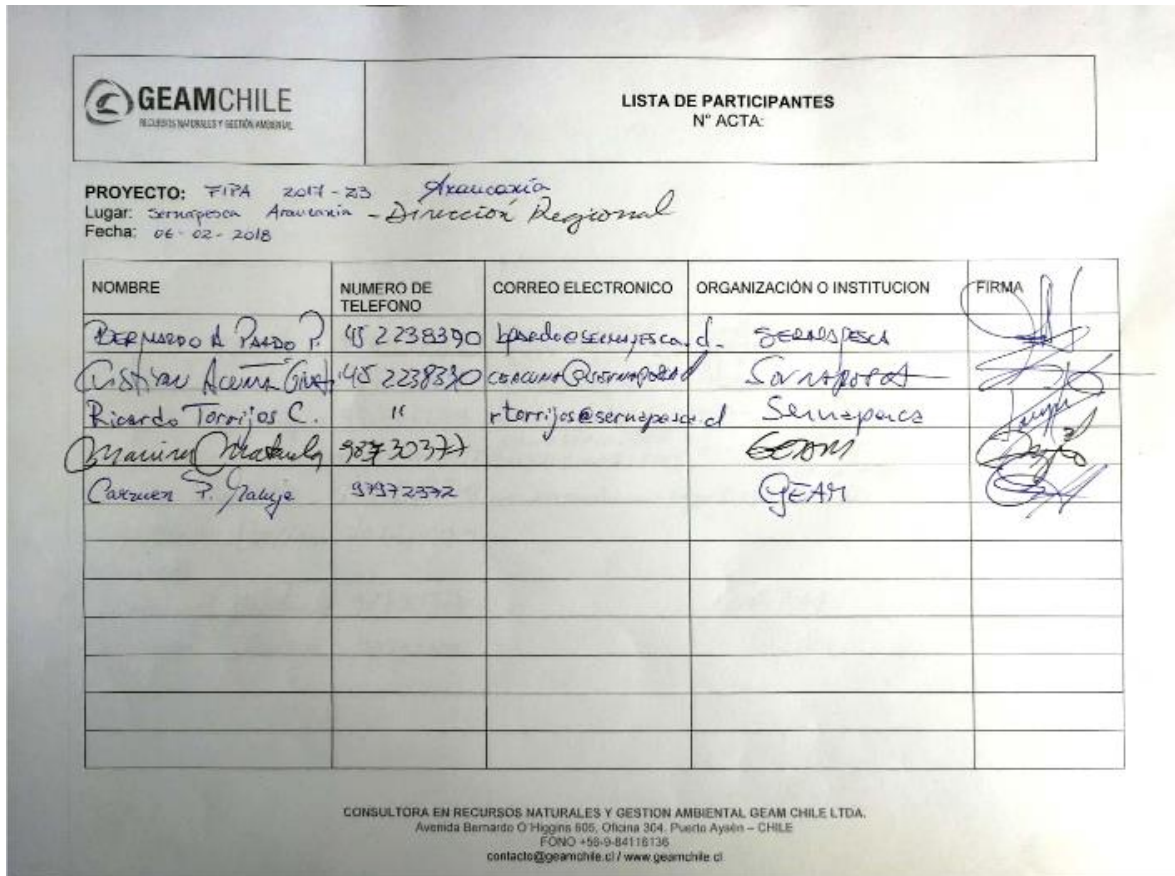 GEAMCHILE
RECURSOS NATURALES Y GESTIÓN AMBIENTAL
LISTA DE PARTICIPANTES
N° ACTA:
PROYECTO: FIPA 2017-23 Araucaria
Lugar: Sernapesca Araucania - Dirección Regional
Fecha: 06-02-2018
NOMBRE NUMERO DE TELEFONO CORREO ELECTRONICO ORGANIZACIÓN O INSTITUCION FIRMA
BERNARDO A PARDO P. 45 2238390 bpardo@sernapesca.cl SERNAPESCA
Cristian Acuña 45 2238390 Sernapesca
Ricardo Torrijos C. " rtorrijos@sernapesca.cl Sernapesca
98730377 GEAM
Carmen P. 97972372 GEAM
CONSULTORA EN RECURSOS NATURALES Y GESTION AMBIENTAL GEAM CHILE LTDA.
Avenida Bernardo O'Higgins 605, Oficina 304. Puerto Aysén – CHILE
FONO +56-9-84116136
contacto@geamchile.cl / www.geamchile.cl